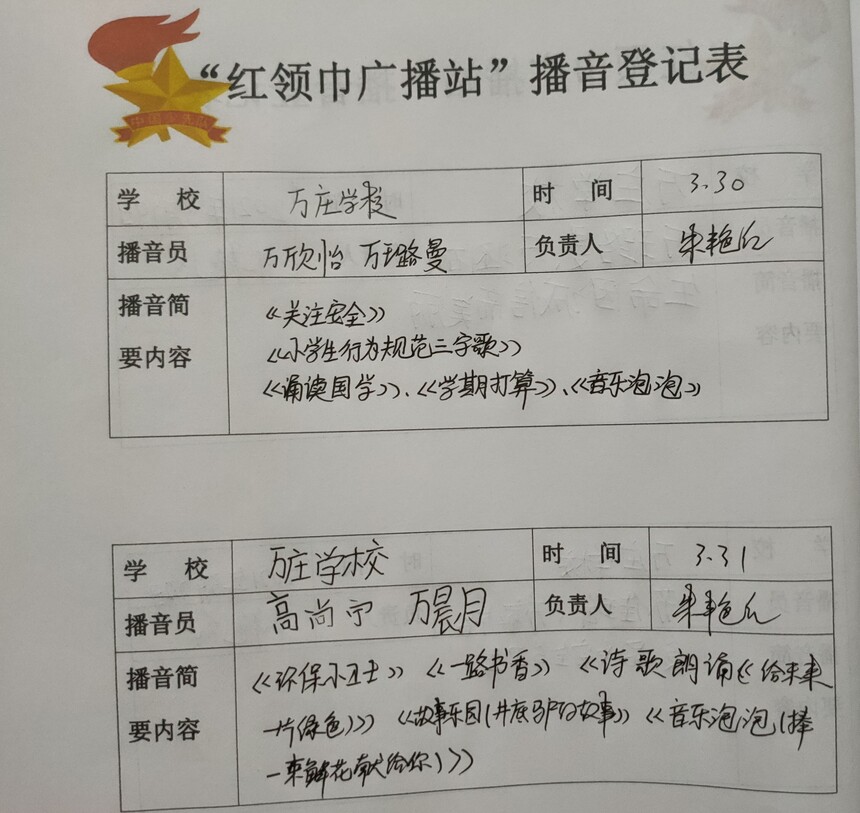 中国少先队
“红领巾广播站”播音登记表
学 校 万庄学校 时 间 3.30
播音员 万欣怡 万璐曼 负责人 朱艳红
播音简 《关注安全》
要内容 《小学生行为规范三字歌》
《诵读国学》、《学期打算》、《音乐泡泡》
学 校 万庄学校 时 间 3.31
播音员 高尚宁 万晨月 负责人 朱艳红
播音简 《环保小卫士》 《一路书香》 《诗歌朗诵《给未来
要内容 一片绿色)》 《故事乐园(井底 的故事》 《音乐泡泡(捧
一束鲜花献给你)》